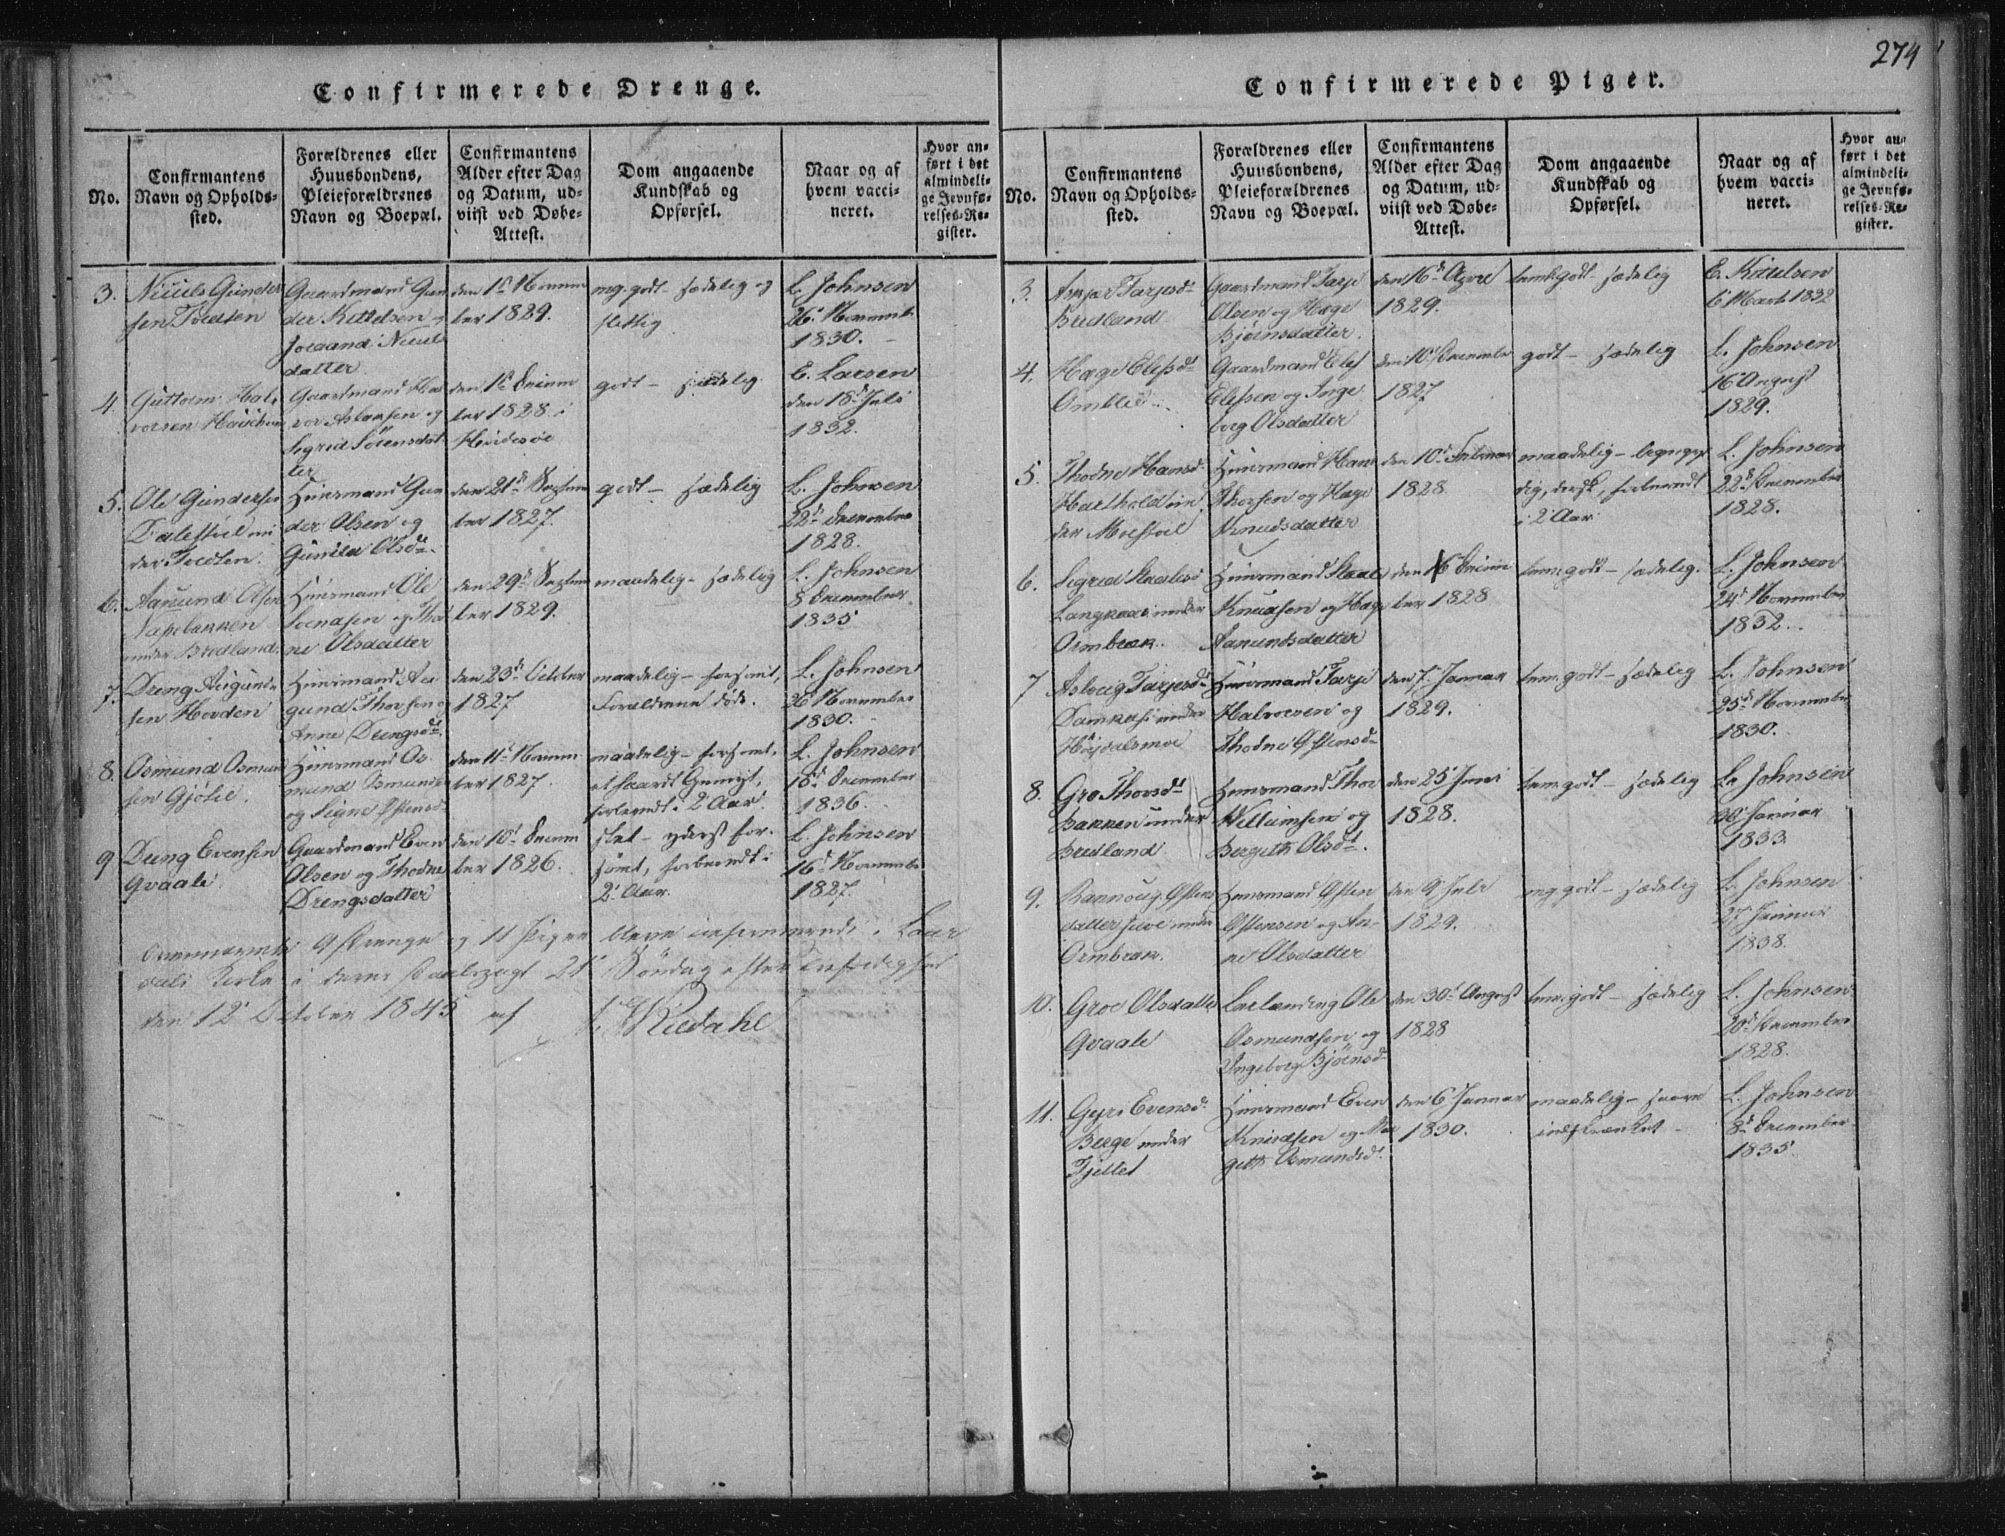 274
Confirmerede Drenge.
No.
Confirmantens
Navn og Opholds-
sted.
Forældrenes eller
Huusbondens,
Pleieforældrenes
Navn og Boepæl.
Confirmantens
Alder efter Dag
og Datum, ud-
viist ved Døbe-
Attest.
Dom angaaende
Kundskab og
Opførsel.
Naar og af
hvem vacci-
neret.
Hvor an-
ført i det
almindeli-
ge Jevnfø-
relses-Re-
gister.
3.
Gunder
sen
Gaardmand Gun
der Kittelsen
datter
den 1ste Novem
ber 1829.
mg. godt - sædelig og
flittig
L. Johnsen
26 Novemb.
1830.
4.
Guttorm Hal-
vorsen
Gaardmand Hal
vor Aslaksen og
Sigrid Sørensdat
ter
den 1ste Decem
ber 1828 i
Hvidesøe
godt - sædelig
E. Larsen
den 18d Juli
1832.
5.
Ole Gundersen
der
Huusmand Gun
der Olsen og
Gunild Olsd.
den 21d Septem
ber 1827.
godt - sædelig
L. Johnsen
22d December
1828.
6.
Aamund Olsen
under Bredland
Huusmand Ole
Svendsen og Tho
ne Olsdatter
den 29d Septem
ber 1829.
maadelig - sædelig
L. Johnsen
8 December
1835
7.
Dreng Augund-
sen Hovden
Huusmand Au
gund Thorsen og
Anne Drengsd.
den 23d October
1827
maadelig - forsømt,
Forældrene døde.
L. Johnsen
26 November
1830.
8.
Osmund Osmund
sen Gjølie.
Huusmand Os-
mund Osmundsen
og Signe Østensd
den 11te Novem
ber 1827.
maadelig - forsømt,
et Gemyt,
forberedt i 2 Aar.
L. Johnsen
15d December
1836.
9
Dreng Evensen
Qvaale.
Gaardmand Even
Olsen og Thodne
Drengsdatter
den 10d Decem
ber 1826.
slet - yderst for-
sømt, forberedt i
2 Aar.
L. Johnsen
16d November
1827.
9 Drenge og 11 Piger bleve confirmerede i Laur
dals Kirke i deres Daabspagt 21 Søndag efter Trefoldighed
den 12 October 1845 af
Confirmerede Piger.
No.
Confirmantens
Navn og Opholds-
sted.
Forældrenes eller
Huusbondens,
Pleieforældrenes
Navn og Boepæl.
Confirmantens
Alder efter Dag
og Datum, ud-
viist ved Døbe-
Attest.
Dom angaaende
Kundskab og
Opførsel.
Naar og af
hvem vacci-
neret.
Hvor an-
ført i det
almindeli-
ge Jevnfø-
relses-Re-
gister.
3.
Tarjesd.
Bredland
Gaardmand Tarje
Olsen og Hæge
Bjørnsdatter.
den 16d April
1829.
tem. godt sædelig
E. Knudsen
6 Marts 1832
4.
Hæge Elefsd.
Gaardmand Elef
Elefsen og Inge
borg Olsdatter
den 10d December
1827
godt - sædelig
L. Johnsen
16 August
1829.
5.
Thodne Hansd.
der
Huusmand Hans
Thorsen og Hæge
Knudsdatter
den 10d Februar
1828
maadelig - begrep
dig, dorsk, forberedt
i 2 Aar.
L. Johnsen
22d December
1828.
6.
Sigrid
under
Ormbrak.
Huusmand
Knudsen og Hæge
Aamundsdatter
den 16 Decem
ber 1828
tem. godt - sædelig.
L. Johnsen
24d November
1832.
7
Aslaug Tarjesd.
under
Høydalsmoe
Huusmand Tarje
Halvorsen og
Thodne Østensd.
den 7 Januar
1829.
tem. godt - sædelig
L. Johnsen
25d November
1830.
8.
Gro Thorsd.
Bakken under
Bredland
Huusmand Thor
Villumsen og
Bergith Olsd.
den 25 Juni
1828.
tem. godt - sædelig
L. Johnsen
Januar
1833.
9.
Rannveig Østens
datter under
Ormbrak.
Huusmand Østen
Østensen og An-
ne Olsdatter
den 9 Juli
1829.
mg. godt - sædelig
L. Johnsen
Januar
1838.
10.
Groe Olsdatter
Qvaale
Ole
Osmundsen og
Ingeborg Bjørnsd.
den 30d August
1828
tem. godt - sædelig
L. Johnsen
20d December
1828.
11.
Gyri Evensd.
Berge under
Fjellet
Huusmand Even
Knudsen og Mar
geth Osmundsd.
den 6 Januar
1830.
maadelig - svare
indskrænket -
L. Johnsen
8d December
1835.